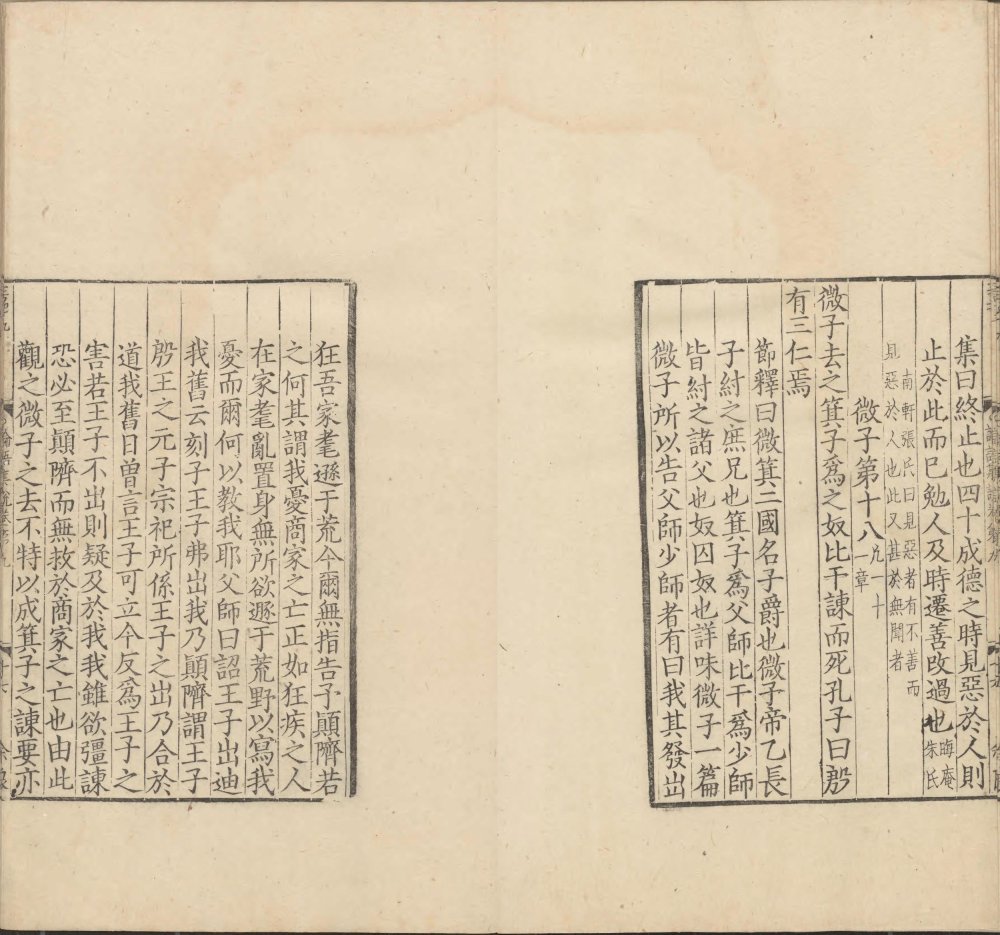 集曰終止也四十成德之時見惡於人則
止於此而已勉人及時遷善改過也晦庵朱氏
南軒張氏曰見惡者有不善而
見惡於人也此又甚於無聞者
微子第十八凡一十一章
微子去之箕子爲之奴比干諫而死孔子曰殷
有三仁焉
節釋曰微箕二國名子爵也微子帝乙長
子紂之庶兄也箕子爲父師比干爲少師
皆紂之諸父也奴囚奴也詳味微子一篇
微子所以告父師少師者有曰我其發出
狂吾家耄遜于荒今爾無指告予顚隮若
之何其謂我憂商家之亡正如狂疾之人
在家耄亂置身無所欲遯于荒野以寫我
憂而爾何以敎我耶父師曰詔王子出迪
我舊云刻子王子弗出我乃顚隮謂王子
殷王之元子宗祀所係王子之出乃合於
道我舊日曾言王子可立今反爲王子之
害若王子不出則疑及於我我雖欲彊諫
恐必至顚隮而無救於商家之亡也由此
觀之微子之去不特以成箕子之諫要亦